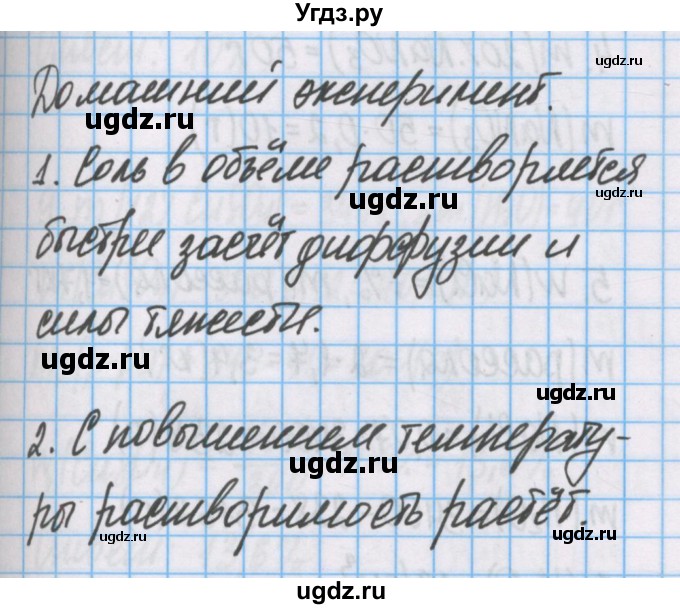 Угдз.ру
Домашний эксперимент.
1. Соль в объёме растворяется
быстрее засчёт диффузии и
силы тяжести.
2. С повышением температу-
ры растворимость растёт.
ugdz.ru
ugdz.ru
ugdz.ru
ugdz.ru
ugdz.ru
ugdz.ru
ugdz.ru
ugdz.ru
ugdz.ru
ugdz.ru
ugdz.ru
ugdz.ru